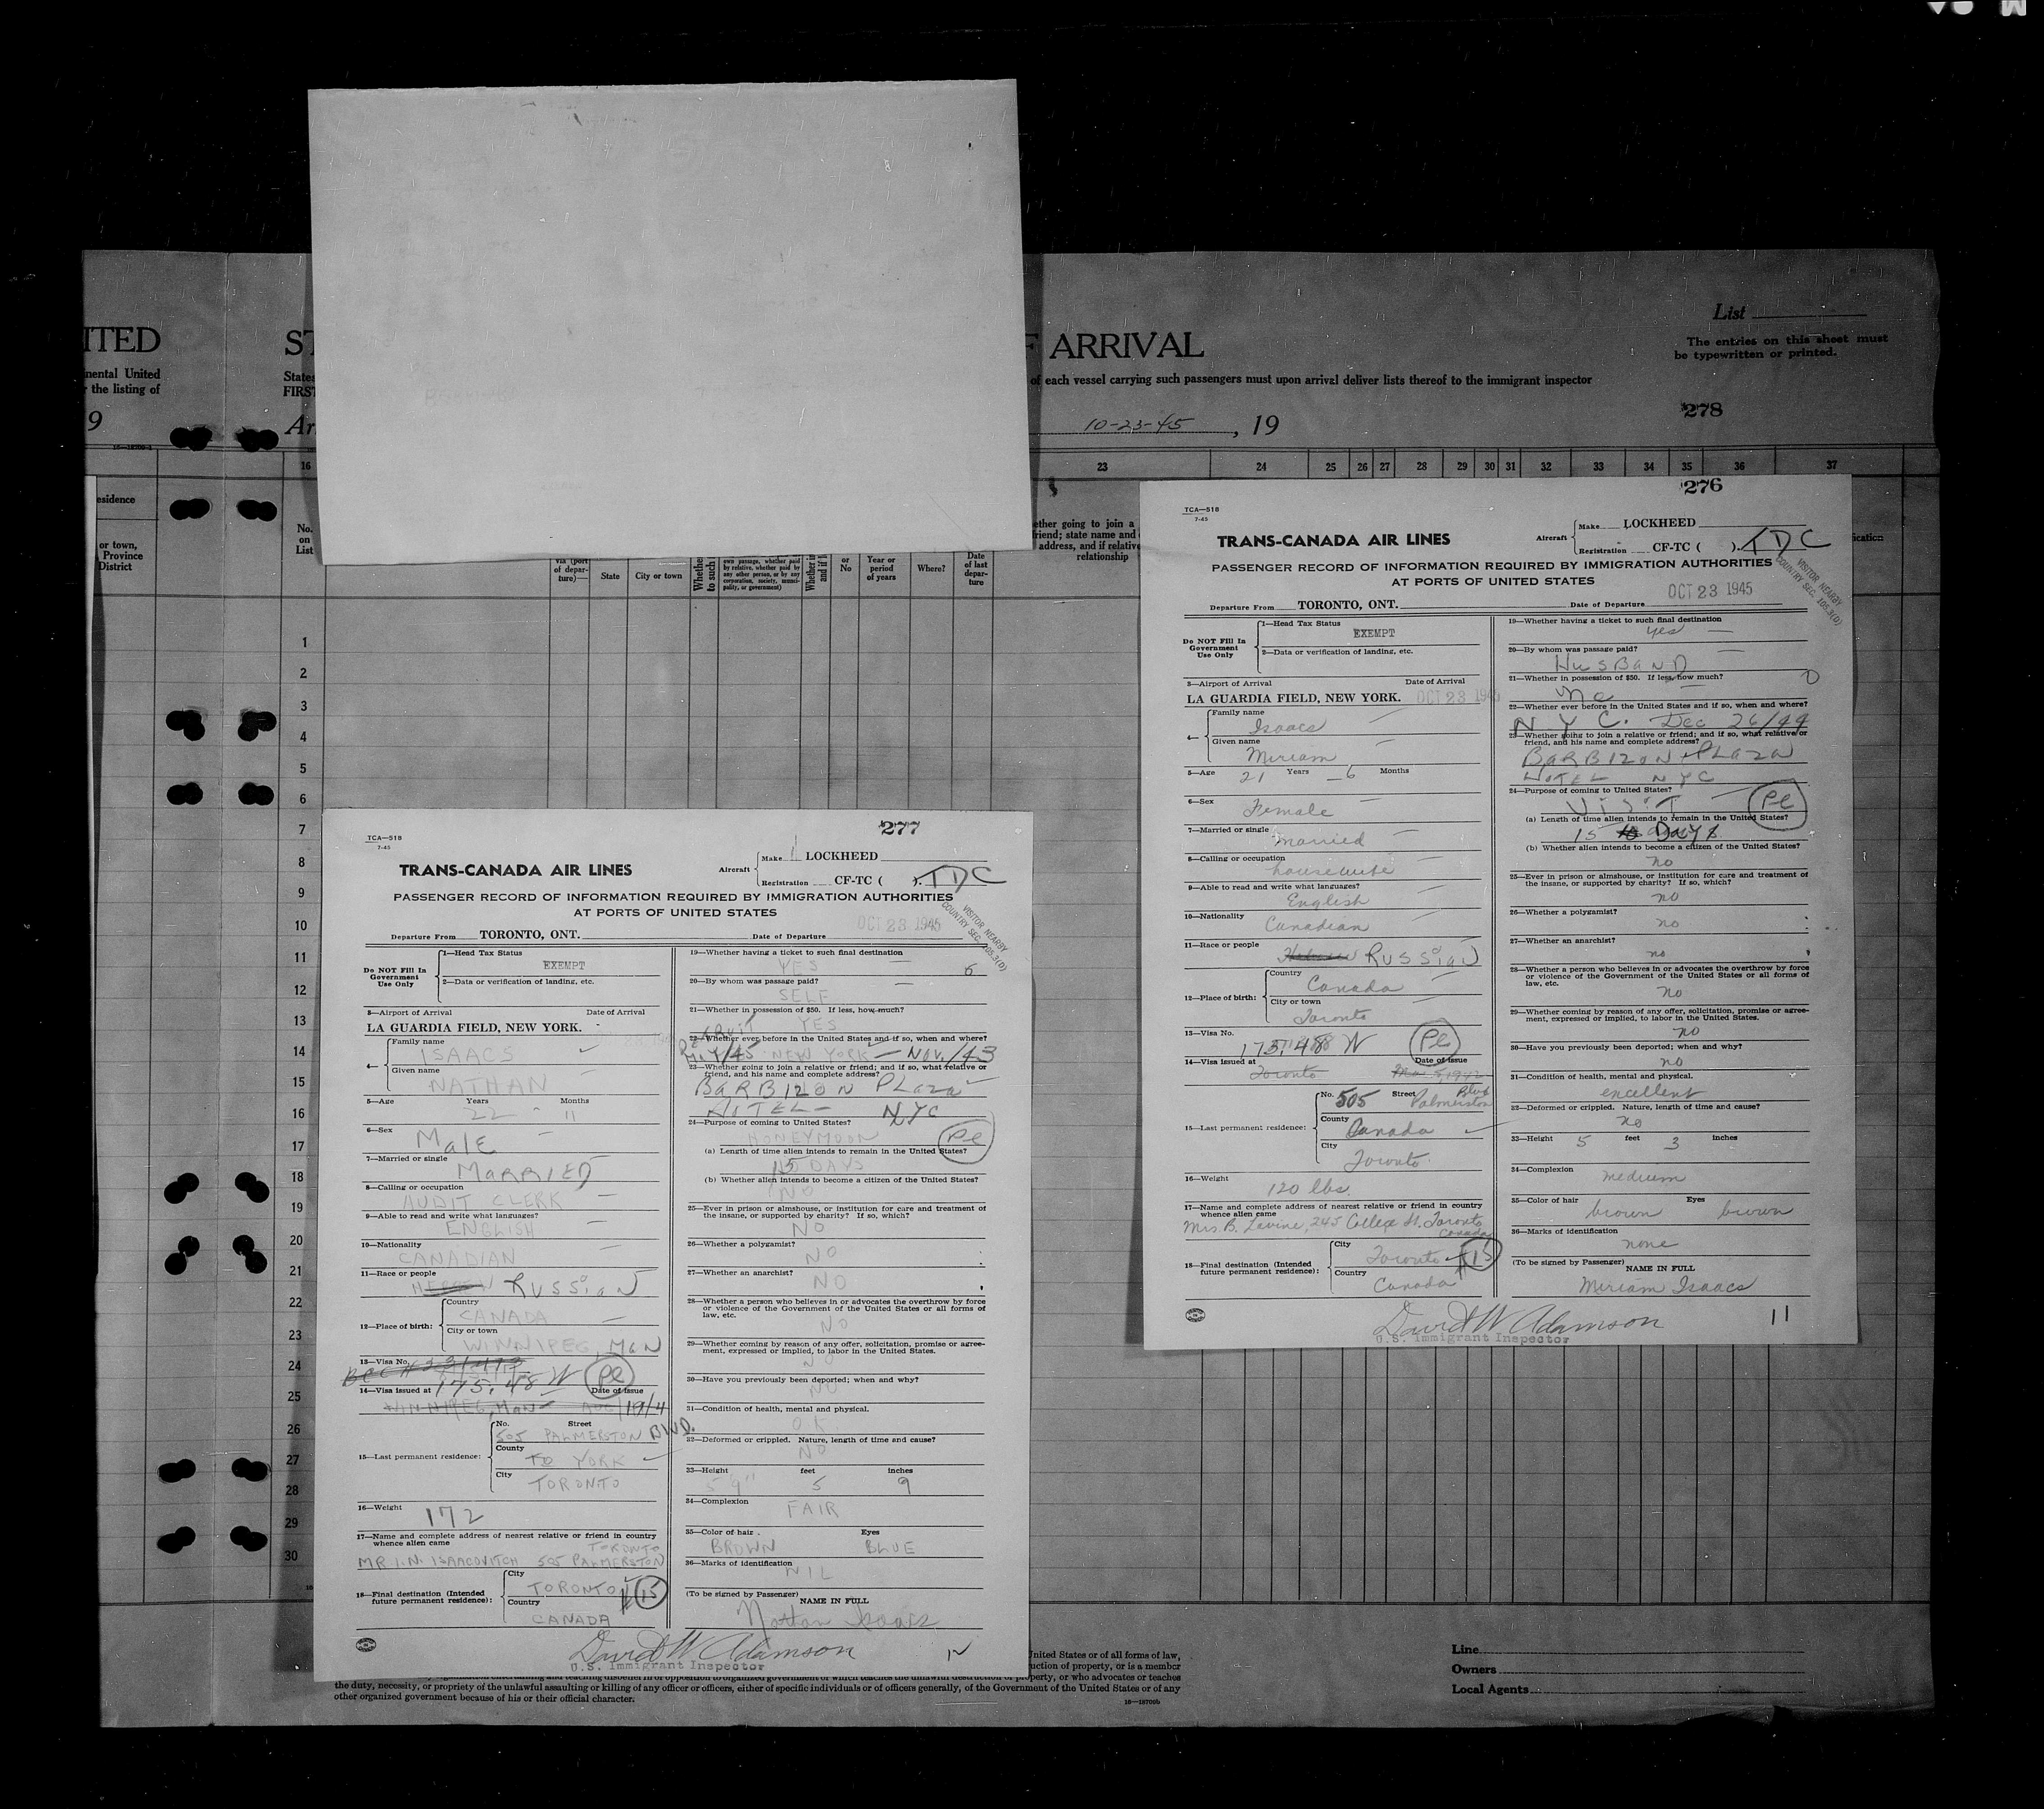 ITED
nental United
r the listing of
9
ST
States
FIRST
Ar
F ARRIVAL
of each vessel carrying such passengers must upon arrival deliver lists thereof to the immigrant inspector
10-23-45, 19
List
The entries on this sheet must
be typewritten or printed.
278
16 23 24 25 26 27 28 29 30 31 32 33 34 35 36 37
esidence
or town,
Province
District
No.
on
List
via (port
of depar-
ture)—
State
City or town
Whethe
to such
own passage, whether paid
by relative, whether paid by
any other person, or by any
corporation, society, munici-
pality, or government)
Whether in
and if l
or
No
Year or
period
of years
Where?
Date
of last
depar-
ture
ether going to join a
friend; state name and
address, and if relative
relationship
ication
1
2
3
4
5
6
7
8
9
10
11
12
13
14
15
16
17
18
19
20
21
22
23
24
25
26
27
28
29
30
277
TCA—518
7-45
TRANS-CANADA AIR LINES
Aircraft
Make LOCKHEED
Registration CF-TC ( ). TDC
PASSENGER RECORD OF INFORMATION REQUIRED BY IMMIGRATION AUTHORITIES
AT PORTS OF UNITED STATES
VISITOR NEARBY
COUNTRY SEC. 105.3(D)
OCT 23 1945
Departure From TORONTO, ONT. Date of Departure
Do NOT Fill In
Government
Use Only
1—Head Tax Status
EXEMPT
2—Data or verification of landing, etc.
3—Airport of Arrival Date of Arrival
LA GUARDIA FIELD, NEW YORK.
4—
Family name
ISAACS
Given name
NATHAN
5—Age Years Months
22 11
6—Sex
MALE
7—Married or single
MARRIED
8—Calling or occupation
AUDIT CLERK
9—Able to read and write what languages?
ENGLISH
10—Nationality
CANADIAN
11—Race or people
HEBREW RUSSIAN
12—Place of birth:
Country
CANADA
City or town
WINNIPEG, MAN
13—Visa No.
14—Visa issued at 175.48 W Pl Date of Issue
WINNIPEG, MAN
15—Last permanent residence:
No. Street
505 PALMERSTON BLVD.
County
YORK
City
TORONTO
16—Weight
172
17—Name and complete address of nearest relative or friend in country
whence alien came
TORONTO
MR I.N. ISAACOVITCH 505 PALMERSTON
18—Final destination (Intended
future permanent residence):
City
TORONTO 15
Country
CANADA
19—Whether having a ticket to such final destination
YES
6
20—By whom was passage paid?
SELF
21—Whether in possession of $50. If less, how much?
YES
22—Whether ever before in the United States and if so, when and where?
NEW YORK — NOV. /43
23—Whether going to join a relative or friend; and if so, what relative or
friend, and his name and complete address?
BARBIZON PLaza
HOTEL— NYC
24—Purpose of coming to United States?
HONEYMOON Pl
(a) Length of time alien intends to remain in the United States?
15 DAYS
(b) Whether alien intends to become a citizen of the United States?
NO
25—Ever in prison or almshouse, or institution for care and treatment of
the insane, or supported by charity? If so, which?
NO
26—Whether a polygamist?
NO
27—Whether an anarchist?
NO
28—Whether a person who believes in or advocates the overthrow by force
or violence of the Government of the United States or all forms of
law, etc.
NO
29—Whether coming by reason of any offer, solicitation, promise or agree-
ment, expressed or implied, to labor in the United States.
NO
30—Have you previously been deported; when and why?
NO
31—Condition of health, mental and physical.
OK
32—Deformed or crippled. Nature, length of time and cause?
NO
33—Height feet inches
5'9" 5 9
34—Complexion
FAIR
35—Color of hair Eyes
BROWN BLUE
36—Marks of identification
NIL
(To be signed by Passenger)
NAME IN FULL
Nathan Isaacs
David W Adamson
U.S. Immigrant Inspector
276
TCA—518
7-45
TRANS-CANADA AIR LINES
Aircraft
Make LOCKHEED
Registration CF-TC ( ). TDC
PASSENGER RECORD OF INFORMATION REQUIRED BY IMMIGRATION AUTHORITIES
AT PORTS OF UNITED STATES
VISITOR NEARBY
COUNTRY SEC. 105.3(D)
OCT 23 1945
Departure From TORONTO, ONT. Date of Departure
Do NOT Fill In
Government
Use Only
1—Head Tax Status
EXEMPT
2—Data or verification of landing, etc.
3—Airport of Arrival Date of Arrival
LA GUARDIA FIELD, NEW YORK. OCT 23 1945
4—
Family name
Isaacs
Given name
Miriam
5—Age 21 Years 6 Months
6—Sex
Female
7—Married or single
married
8—Calling or occupation
housewife
9—Able to read and write what languages?
English
10—Nationality
Canadian
11—Race or people
Hebrew RUSSIAN
12—Place of birth:
Country
Canada
City or town
Toronto
13—Visa No.
175.48 W Pl
14—Visa issued at Date of Issue
Toronto
15—Last permanent residence:
No. 505 Street Palmerston Blvd
County
Canada
City
Toronto
16—Weight
120 lbs.
17—Name and complete address of nearest relative or friend in country
whence alien came
Mrs B. Levine, 245 College St. Toronto
Canada
18—Final destination (Intended
future permanent residence):
City
Toronto 15
Country
Canada
19—Whether having a ticket to such final destination
yes
20—By whom was passage paid?
HUSBAND
21—Whether in possession of $50. If less, how much?
no
22—Whether ever before in the United States and if so, when and where?
N Y C. Dec 26/44
23—Whether going to join a relative or friend; and if so, what relative or
friend, and his name and complete address?
BARBIZON PLaza
HOTEL NYC
24—Purpose of coming to United States?
VISIT Pl
(a) Length of time alien intends to remain in the United States?
15 Days
(b) Whether alien intends to become a citizen of the United States?
no
25—Ever in prison or almshouse, or institution for care and treatment of
the insane, or supported by charity? If so, which?
no
26—Whether a polygamist?
no
27—Whether an anarchist?
no
28—Whether a person who believes in or advocates the overthrow by force
or violence of the Government of the United States or all forms of
law, etc.
no
29—Whether coming by reason of any offer, solicitation, promise or agree-
ment, expressed or implied, to labor in the United States.
no
30—Have you previously been deported; when and why?
no
31—Condition of health, mental and physical.
excellent
32—Deformed or crippled. Nature, length of time and cause?
no
33—Height 5 feet 3 inches
34—Complexion
medium
35—Color of hair Eyes
brown brown
36—Marks of identification
none
(To be signed by Passenger)
NAME IN FULL
Miriam Isaacs
David W Adamson
U.S. Immigrant Inspector
11
United States or of all forms of law,
uction of property, or is a member
property, or who advocates or teaches
the duty, necessity, or propriety of the unlawful assaulting or killing of any officer or officers, either of specific individuals or of officers generally, of the Government of the United States or of any
other organized government because of his or their official character.
Line
Owners
Local Agents